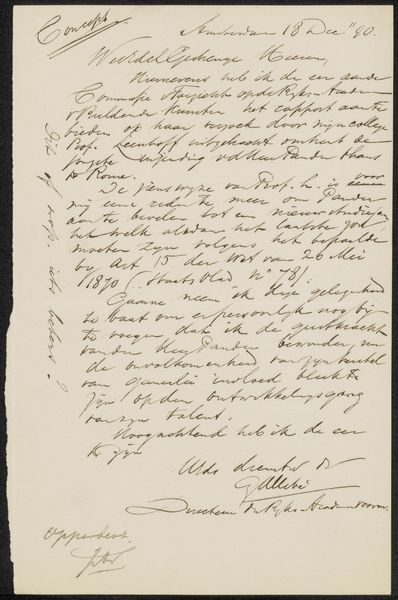 Concept
Amsterdam 18 Dec. 90.
WelEdelGestrenge Heeren,
Hiernevens heb ik de eer aan de
Commissie v Toezicht op de Ryks-Academ
v Beeldende Kunsten het rapport aan te
bieden op haar verzoek door mijn collega
Prof. Leenhoff uitgebracht omtrent de
jongste zending v d Heer Pander thans
te Rome.
De zienswyze van Prof. L. is voor
mij eene reden te meer om Pander
aan te bevelen tot een nieuw studiejaar
het welk alsdan het laatste zal
moeten zyn volgens het bepaalde
by Art 15 der Wet van 26 Mei
1870 (Staatsblad No 78).
Gaarne neem ik deze gelegenheid
te baat om er persoonlyk nog bij
te voegen dat ik de geestkracht
van den Heer Pander bewonder, nu
de onvolkomenheid van zyn
van geenerlei invloed blykt te
zyn op den ontwikkelingsgang
van zyn talent.
Hoogachtend heb ik de eer
te zyn
UEds dienstw dr
GAllebé
Directeur der Ryks-Academie
Dit of nog iets beters?